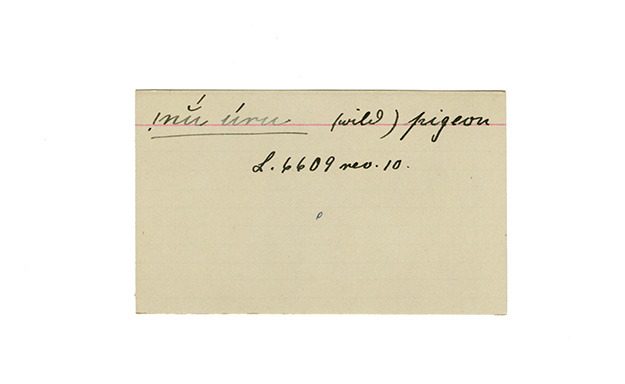 !nŭ́ úru (wild) pigeon
L. 6609 rev. 10.